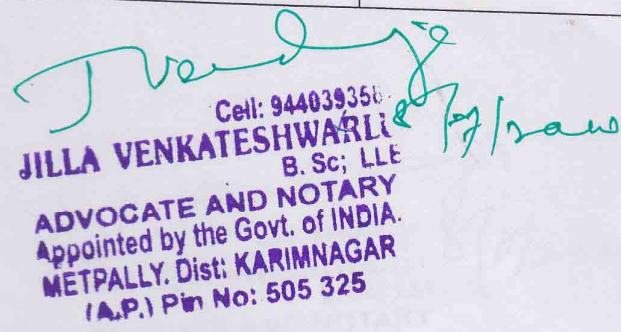 Cell: 94403935
JILLA VENKATESHWARLU
B. Sc; LLB
ADVOCATE AND NOTARY
Appointed by the Govt. of INDIA.
METPALLY. Dist: KARIMNAGAR
(A.P.) Pin No: 505 325